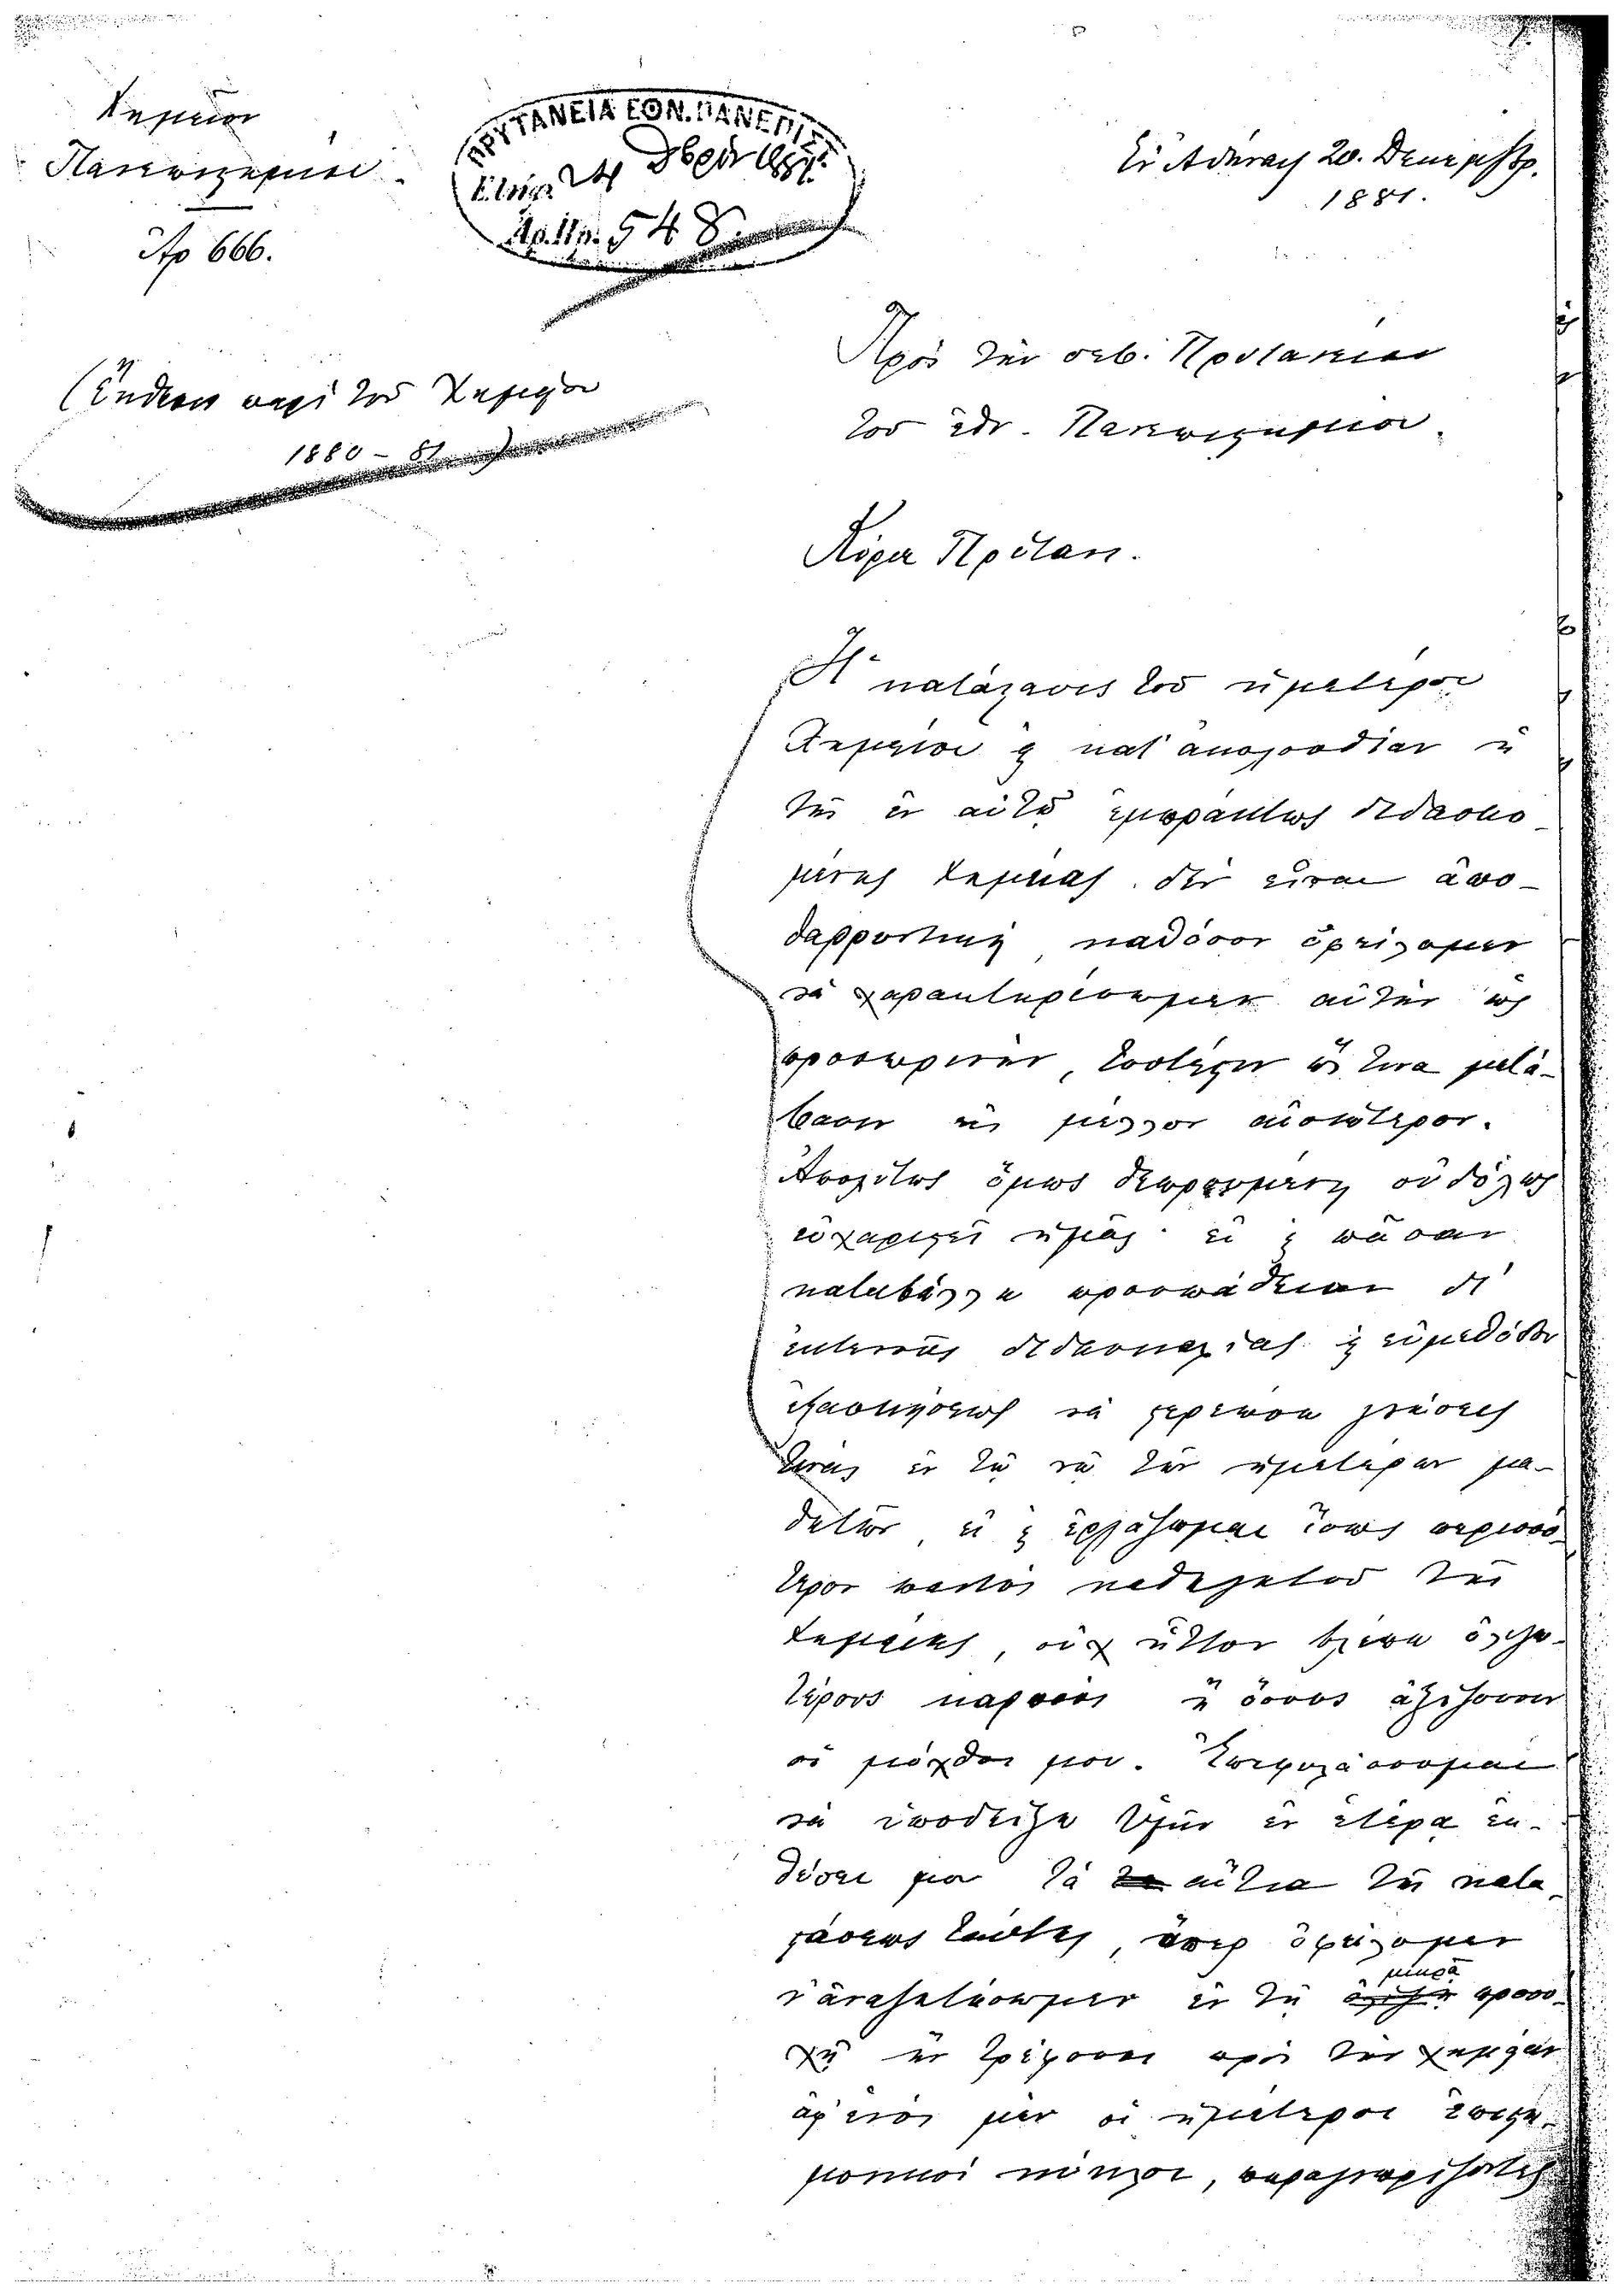 Χημεῖον
Πανεπιστημίου
Ἀρ 666.
ΠΡΥΤΑΝΕΙΑ ΕΘΝ. ΠΑΝΕΠΙΣΤ.
24 δβρίου 1881
Ἀρ. Πρ. 548
Ἐν Ἀθήναις 20. Δεκεμβρ.
1881.
(Ἔκθεσις περὶ τοῦ Χημείου
1880 – 81)
Πρὸς τὴν σεβ. Πρυτανείαν
τοῦ ἐθν. Πανεπιστημίου.
Κύριε Πρύτανι.
Ἡ κατάστασις τοῦ ἡμετέρου
Χημείου ϗ κατ' ἀκολουθίαν ἡ
τῆς ἐν αὐτῷ ἐμπράκτως διδασκο-
μένης Χημείας δὲν εἶναι ἀπο-
θαρρυντική, καθόσον ὀφείλομεν
νὰ χαρακτηρίσωμεν αὐτὴν ὡς
προσωρινήν, τοὐτέστιν ὥς τινα μετά-
βασιν εἰς μέλλον αἰσιώτερον.
Ἀπολύτως ὅμως θεωρουμένη οὐδόλως
εὐχαριστεῖ ἡμᾶς· εἰ ϗ πᾶσαν
καταβάλλω προσπάθειαν δι'
ἐκτενοῦς διδασκαλίας ϗ εὐμεθόδου
ἐξασκήσεως νὰ στερεώσω γνώσεις
τινὰς ἐν τῷ νῷ τῶν ἡμετέρων μα-
θητῶν, εἰ ϗ ἐργάζωμαι ἴσως περισσό-
τερον παντὸς καθηγητοῦ τῆς
Χημείας, οὐχ ἧττον βλέπω ὀλιγω-
τέρους καρποὺς ἢ ὅσους ἀξίζουσιν
οἱ μόχθοι μου. Ἐπιφυλάσσομαι
νὰ ὑποδείξω Ὑμῖν ἐν ἑτέρᾳ ἐκ-
θέσει μου τὰ αἴτια τῆς κατα-
στάσεως ταύτης, ἅπερ ὀφείλομεν
ν' ἀναζητήσωμεν ἐν τῇ μικρᾷ προσο-
χῇ ἣν τρέφουσι πρὸς τὴν χημείαν
ἀφ' ἑνὸς μὲν οἱ ἡμέτεροι ἐπιστη-
μονικοὶ κύκλοι, παραγνωρίζοντες